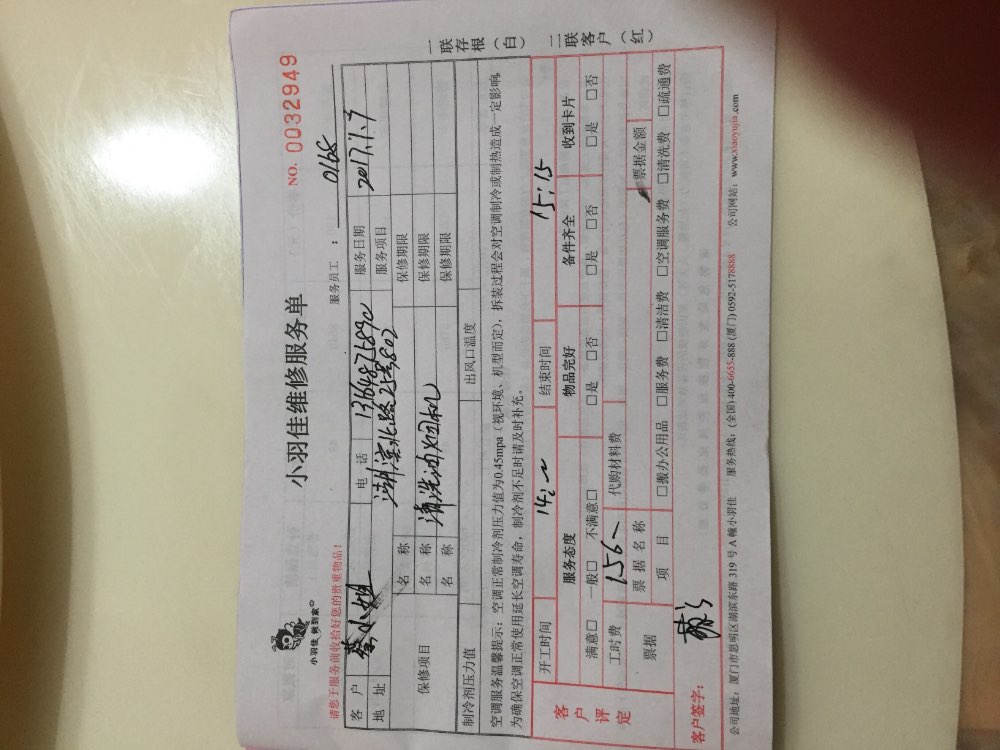 小羽佳 候到家中
小羽佳维修服务单
NO. 0032949
请您于服务前收拾好您的贵重物品！
服务员工： 0168
客 户 蔡小姐 电 话 服务日期 2017.1.7
地 址 湖滨北路 服务项目
保修项目 名 称 保修期限
名 称 清洗油烟机 保修期限
名 称 保修期限
制冷剂压力值 出风口温度
空调服务温馨提示：空调正常制冷剂压力值为0.45mpa（视环境、机型而定），拆装过程会对空调制冷或制热造成一定影响，
为确保空调正常使用延长空调寿命，制冷剂不足时请及时补充。
客户评定
开工时间 14: 结束时间 15:15
服务态度 物品完好 备件齐全 收到卡片
满意□ 一般□ 不满意□ □是 □否 □是 □否 □是 □否
工时费 156 代购材料费
票据 票 据 名 称 票据金额
项 目 □搬办公用品 □服务费 □清洁费 □空调服务费 □清洗费 □疏通费
客户签字：
公司地址：厦门市思明区湖滨东路 319 号 A 幢小羽佳 服务热线：(全国) 400-6655-888 (厦门) 0592-5178888 公司网站：www.xiaoyujia.com
一联存根（白） 二联客户（红）